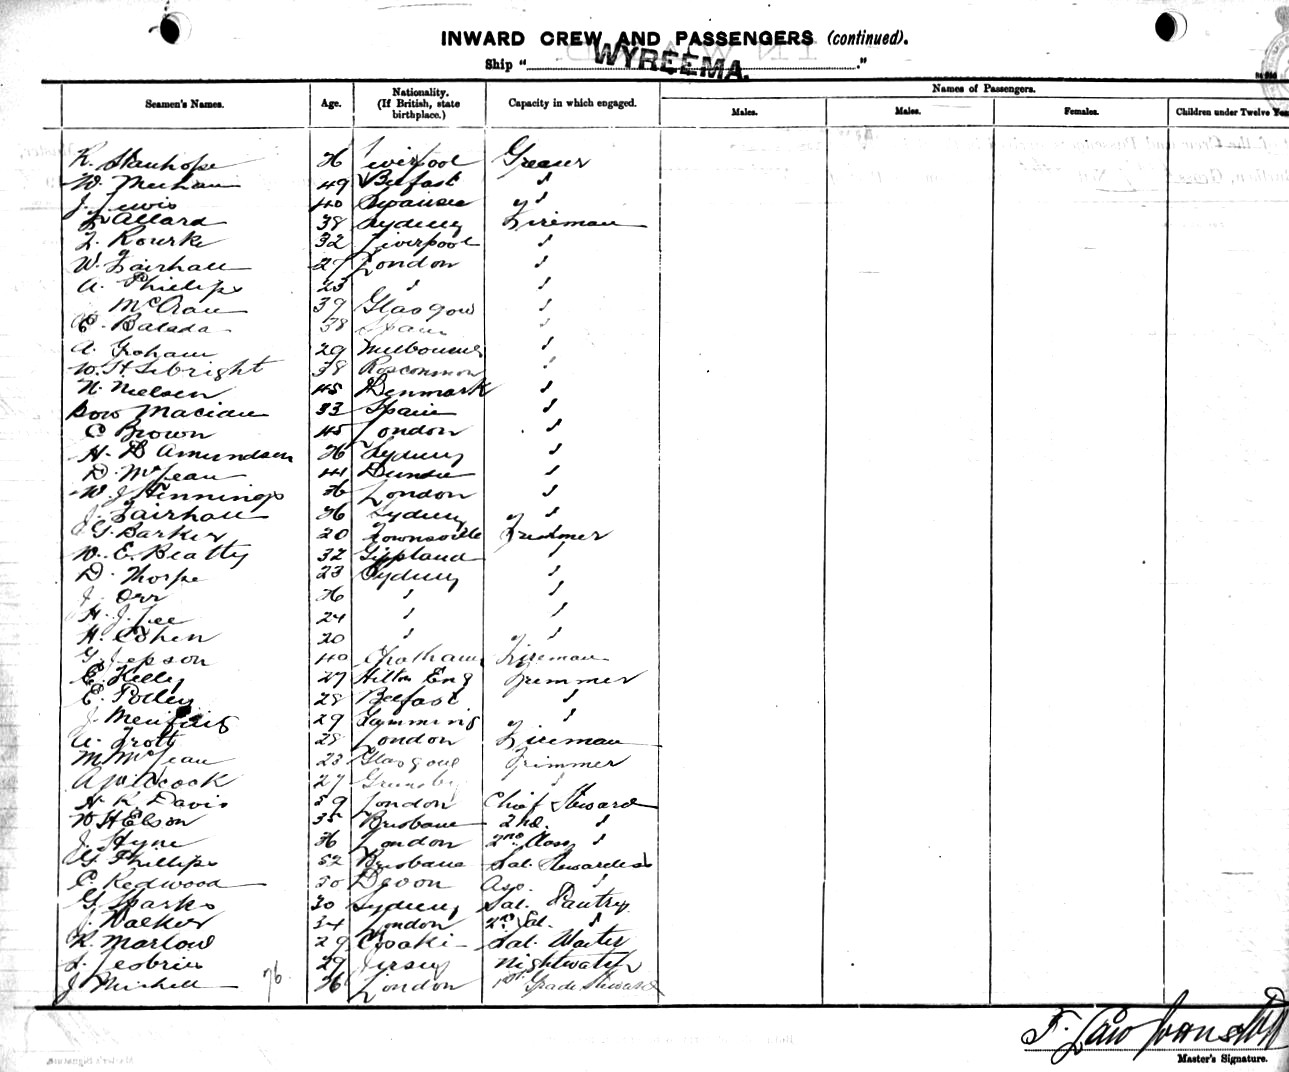 INWARD CREW AND PASSENGERS (continued).
Ship "WYREEMA."
Seamen's Names. Age. Nationality. (If British, state birthplace.) Capacity in which engaged. Names of Passengers.
Males. Males. Females. Children under Twelve
R. Stanhope 36 Liverpool Greaser
W. Meehan 49 Belfast "
J. Lewis 40 Swansea "
Allard 38 Sydney Fireman
Rourke 32 Liverpool "
W. Fairhall 27 London "
A. Phillips 23 " "
McCrae 39 Glasgow "
Balada 38 Spain "
A. Graham 29 Melbourne "
W. H. Sebright 38 Roscommon "
N. Nielsen 45 Denmark "
Macian 33 Spain "
C Brown 45 London "
H. B Amundsen 36 Sydney "
D. McLean 41 Dundee "
W. J Hennings 36 London "
J. Fairhall 36 Sydney "
G. Barker 20 Townsville Trimmer
W. E. Beatty 32 Gippland "
D. Thorpe 23 Sydney "
J. Orr 36 " "
H. J. Lee 24 " "
H. Cohen 20 " "
G. Jepson 40 Chatham Fireman
E. Kelly 27 Hilton Eng Trimmer
E. Polley 28 Belfast "
J. 29 "
Trott 28 London Fireman
M. McLean 23 Glasgow Trimmer
A Wilcock 27 Grimsby "
H. K Davis 39 London Chief Steward
W H Elson 35 Brisbane 2nd. "
J. Hyne 36 London 2nd Class "
G. Phillips 52 Brisbane Sal. Stewardess
C. Redwood 30 Devon Ass. "
G. Sparks 30 Sydney Sal. Pantry
J. Walker 34 London 2nd Sal. "
R. Marlow 29 Sal. Waiter
29 Jersey Nightwatch
J Mitchell 36 London 1st Grade Steward
76
Master's Signature.